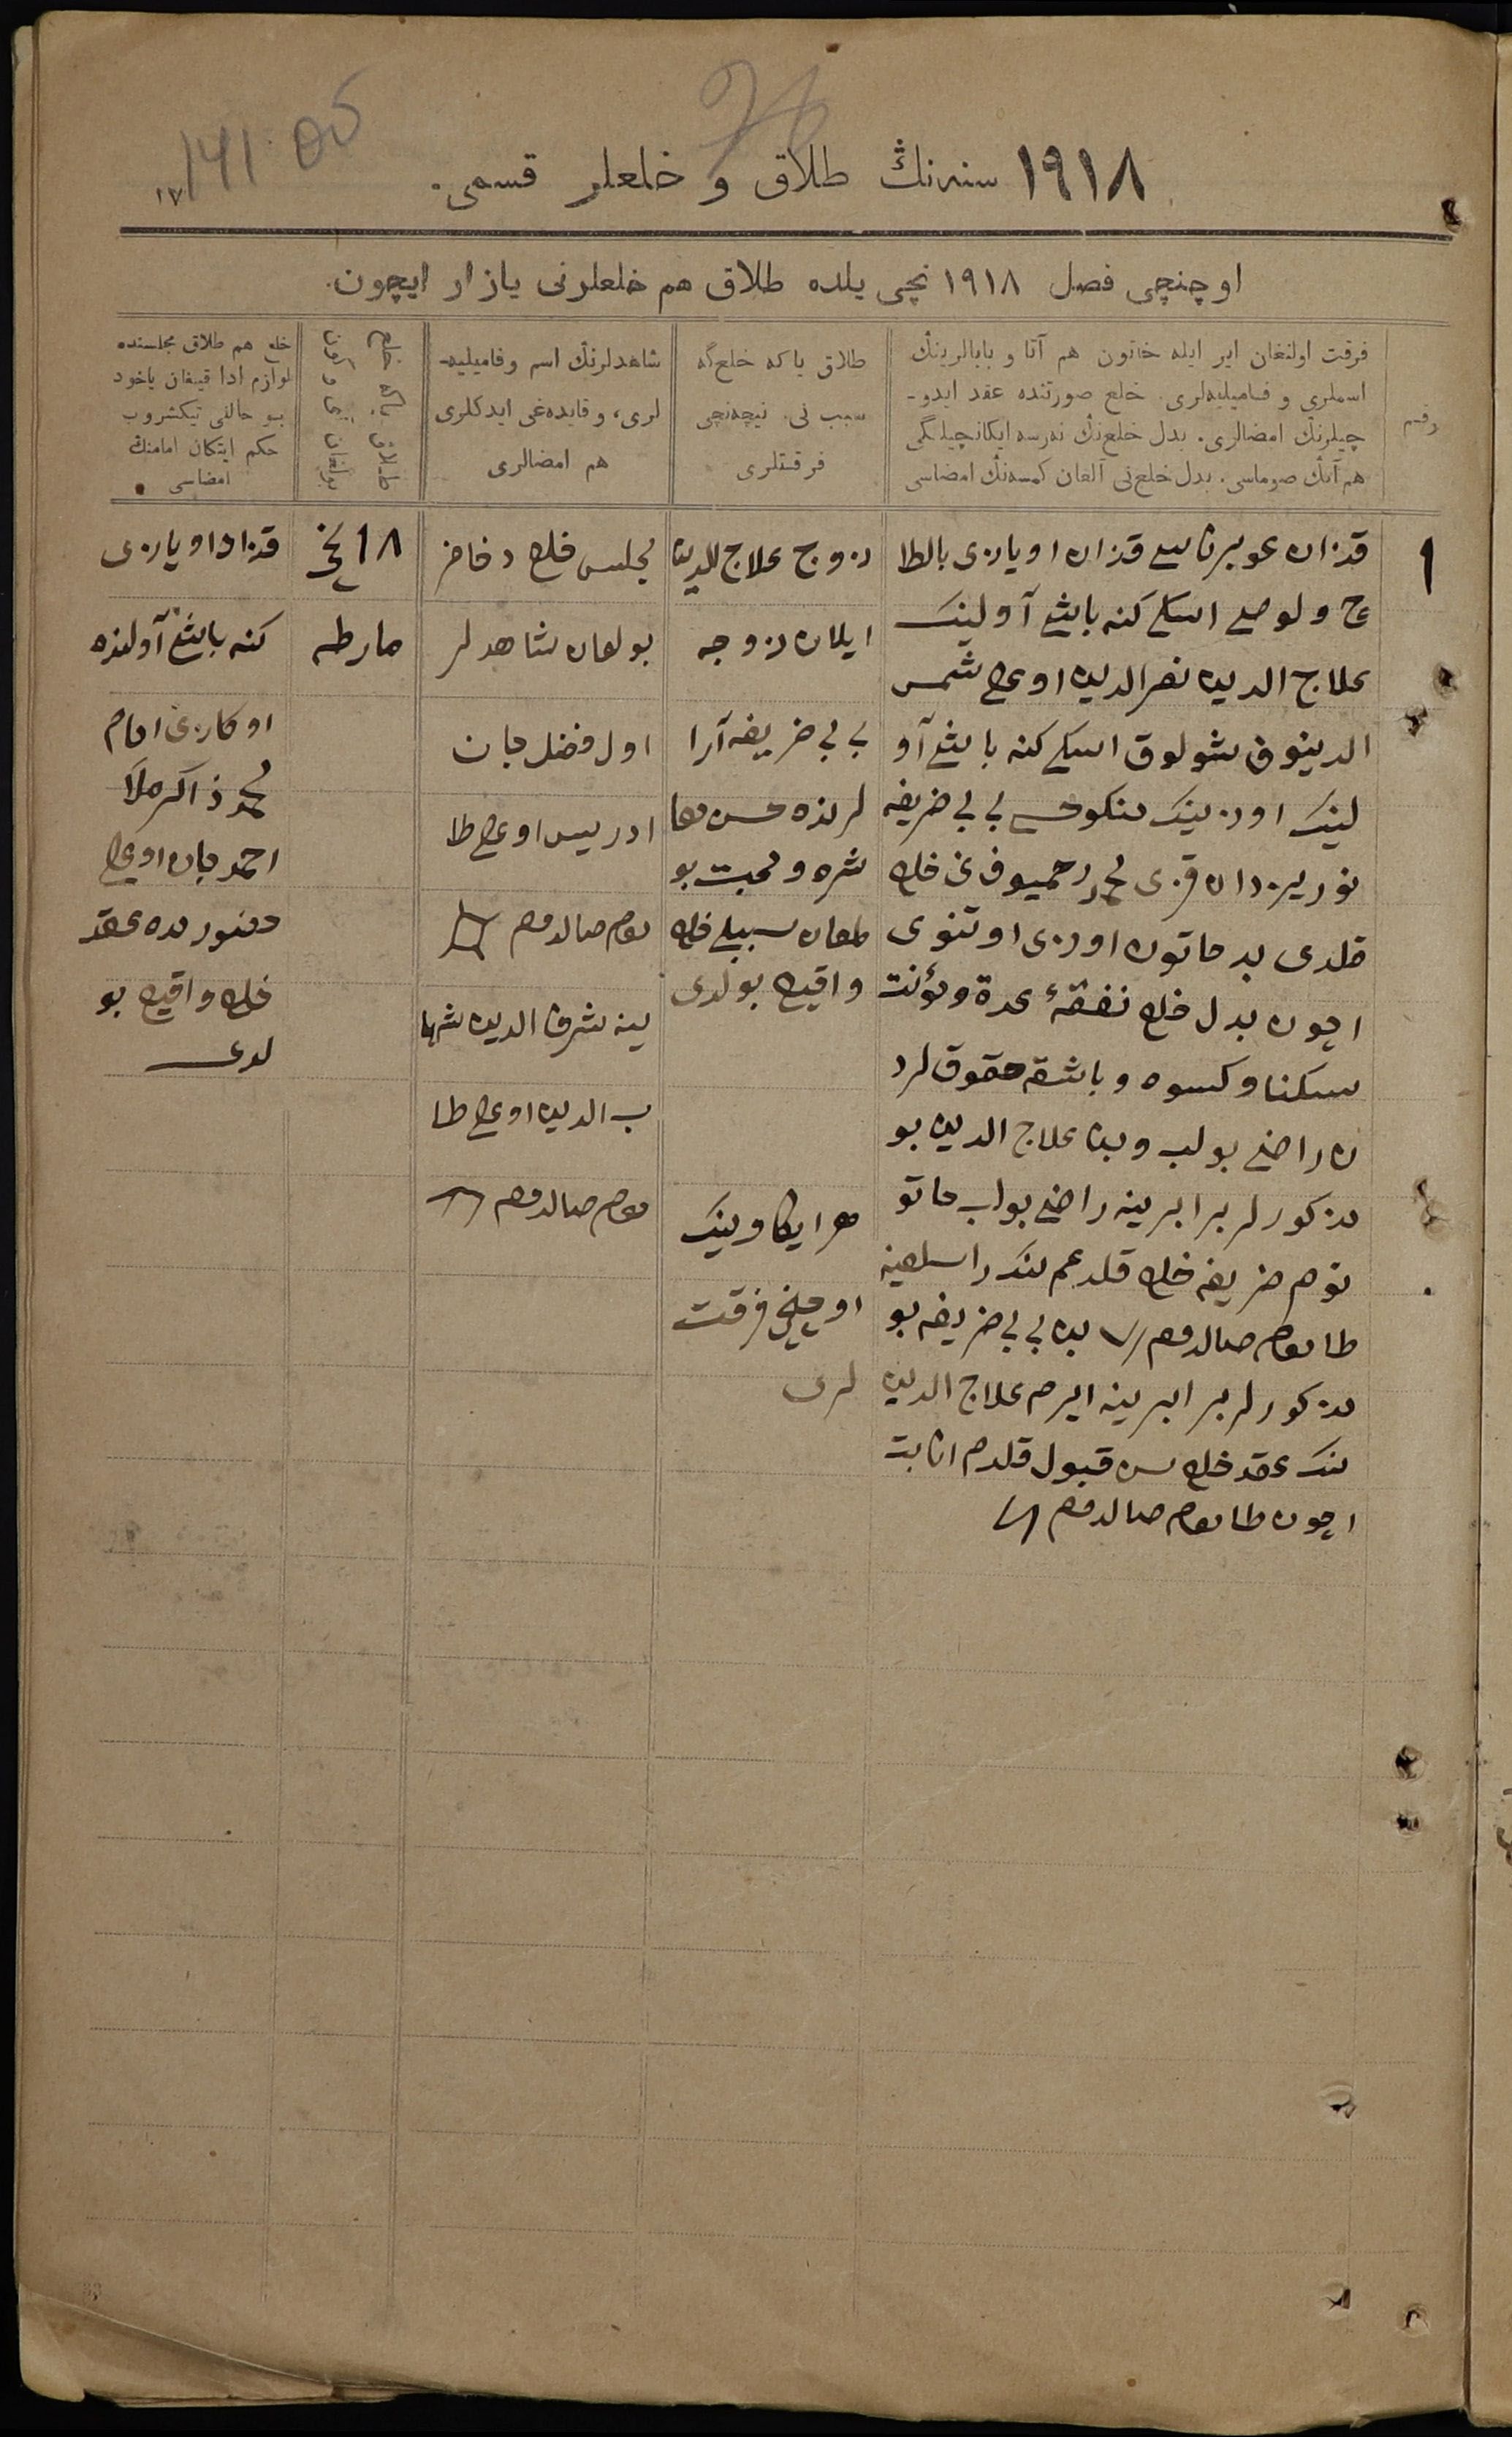 141 об
١٧
١٩١٨ سنه‌نڭ طلاق و خلعلر قسمى.
اوچنچى فصل ١٩١٨ نچى يلده طلاق هم خلعلرنى يازار ايچون.
رقم
فرقت اولنغان اير ايله خاتون هم آتا و بابالرينڭ
اسملرى و فاميليه‌لرى. خلع صورتنده عقد ايدو-
چيلرنڭ امضالرى. بدل خلع‌نڭ نه‌رسه ايكانچيلگى
هم آنڭ صوماسى. بدل خلع‌نى آلغان كمسه‌نڭ امضاسى
طلاق ياكه خلع‌گه
سبب نى. نيچه‌نچى
فرقتلرى
شاهدلرنڭ اسم وفاميليه-
لرى، و قايده‌غى ايدكلرى
هم امضالرى
طلاق ياكه خلع
بولغان آى و كون
خلع هم طلاق مجلسنده
لوازم ادا قيلغان ياخود
بو حالنى تيكشروب
حكم ايتكان امامنڭ
امضاسى
١
قزان غوبرناسى قزان اويازى بالطا
چ ولوصى اسكى كنه باش آولينك
علاج الدين نصرالدين اوغلى شمس
الدينوف شولوق اسكى كنه باش آو
لينك اوزينك منكوحه‌سى بى بى ضريفه
نوريزدان قزى محمدرحيموف‌نى خلع
قلدى بو خاتون اوزى اوتنوى
اچون بدل خلع نفقهٔ عدة ومؤنت
سكنا وكسوه وباشقه حقوق لرد
ن راضى بولب وبن علاج الدين بو
مذكورلر برابرينه راضى بولب خاتو
نوم ضريفه خلع قلدم راسلغينه
طامغام صالدم بن بى بى ضريفه بو
مذكورلر برابرينه ايرم علاج الدين
ننك عقد خلع‌سن قبول قلدم اثابت
اچون طامغام صالدم
زوج علاج الدين
ايلان زوجه
بى بى ضريفه آرا
لرنده حسن معا
شره ومحبت بو
لماغان سببلى خلع
واقع بولدى
هر ايكاوينك
اولنچى فرقت
لرى
مجلس خلعده حاضر
بولغان شاهدلر
اول فضل جان
ادريس اوغلى طا
مغام صالدم
ينه شرف الدين شها
ب الدين اوغلى طا
مغام صالدم
١٨ نچى
مارطه
قزان اويازى
كنه باش آولنده
اوكازنى امام
محمدذاكر ملا
احمدجان اوغلى
حضورنده عقد
خلع واقع بو
لدى